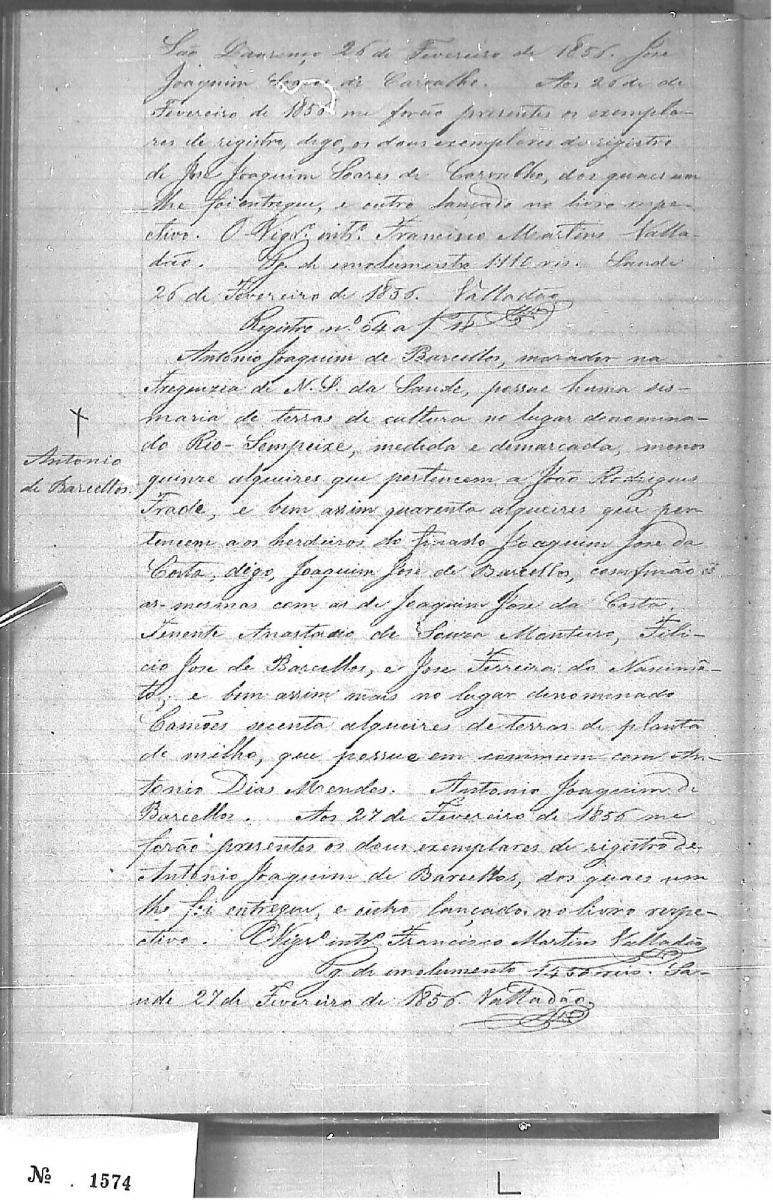 São Lourenço 26 de Fevereiro de 1856. José
Joaquim Soares de Carvalho. Aos 26 de de
Fevereiro de 1856 me forão presentes os exempla-
res de registro, digo, os dous exemplares de registro
de José Joaquim Soares de Carvalho, dos quaes um
lhe foi entregue, e outro lançado no livro respe-
ctivo. O Vigr.º intr.º Francisco Martins Valla-
dão. Pg. de emolumento 1110 reis. Saude
26 de Fevereiro de 1856. Valladão
Registro n.º 64 a f
Antonio Joaquim de Barcellos, morador na
Freguezia de N. S. da Saude, possue huma ses-
maria de terras de cultura no lugar denomina-
do Rio-, medida e demarcada, menos
quinze alqueires que pertencem a João Rodrigues
Frade, e bem assim quarenta alqueires que per
tencem aos herdeiros do finado Joaquim José da
Costa, digo, Joaquim José de Barcellos, confinão
as mesmas com as de Joaquim José da Costa,
Tenente Anastacio de Souza Monteiro, Feli-
cio José de Barcellos, e José Ferreira do Nascimē-
to, e bem assim mais no lugar denomenado
Camões secenta alqueires de terras de planta
de milho, que possue em commum com An-
tonio Dias Mendes. Antonio Joaquim de
Barcellos. Aos 27 de Fevereiro de 1856 me
forão presentes os dous exemplares de registro de
Antonio Joaquim de Barcellos, dos quaes um
lhe foi entregue, e outro lançado no livro respe-
ctivo. O Vigr.º intr.º Francisco Martins Valladão
Pg. de emolumento 1450 reis. Sa-
ude 27 de Fevereiro de 1856. Valladão
Antonio
de Barcellos.
Nº 1574